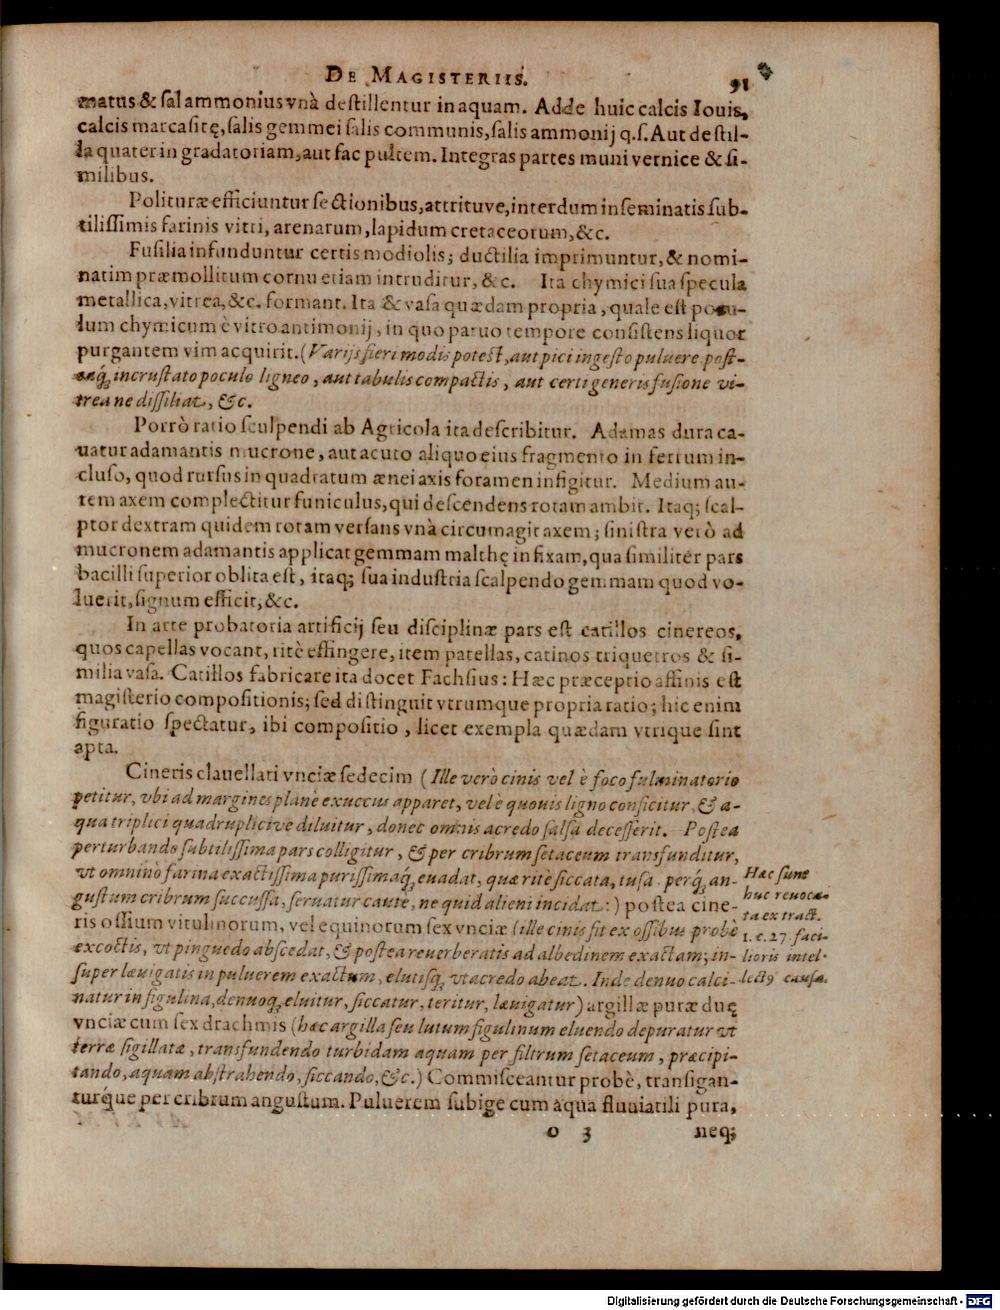 DE MAGISTERIIS. 91
matus & sal ammonius vnà destillentur in aquam. Adde huic calcis Iouis,
calcis marcasitę, salis gemmei salis communis, salis ammonij q.s. Aut destil-
la quater in gradatoriam, aut fac pultem. Integras partes muni vernice & si-
milibus.
Polituræ efficiuntur sectionibus, attrituve, interdum inseminatis sub-
tilissimis farinis vitri, arenarum, lapidum cretaceorum, &c.
Fusilia infunduntur certis modiolis; ductilia imprimuntur, & nomi-
natim præmollitum cornu etiam intruditur, &c. Ita chymici sua specula
metallica, vitrea, &c. formant. Ita & vasa quædam propria, quale est pocu-
lum chymicum è vitro antimonij, in quo paruo tempore consistens liquor
purgantem vim acquirit. (Varijs fieri modis potest, aut pici ingesto puluere post-
eaq́; incrustato poculo ligneo, aut tabulis compactis, aut certi generis fusione vi-
trea ne dissiliat, &c.
Porrò ratio sculpendi ab Agricola ita describitur. Adamas dura ca-
uatur adamantis mucrone, aut acuto aliquo eius fragmento in ferrum in-
cluso, quod rursus in quadratum ænei axis foramen infigitur. Medium au-
tem axem complectitur funiculus, qui descendens rotam ambit. Itaq; scal-
ptor dextram quidem rotam versans vnà circumagit axem; sinistra verò ad
mucronem adamantis applicat gemmam malthę infixam, qua similiter pars
bacilli superior oblita est, itaq; sua industria scalpendo gemmam quod vo-
luerit, signum efficit, &c.
In arte probatoria artificij seu disciplinæ pars est catillos cinereos,
quos capellas vocant, ritè effingere, item patellas, catinos triquetros & si-
milia vasa. Catillos fabricare ita docet Fachsius: Hæc præceptio affinis est
magisterio compositionis; sed distinguit vtrumque propria ratio; hic enim
figuratio spectatur, ibi compositio, licet exempla quædam vtrique sint
apta.
Cineris clauellati vnciæ sedecim (Ille verò cinis vel è foco fulminatorio
petitur, vbi ad margines planè exuccus apparet, vel è quouis ligno conficitur, & a-
qua triplici quadruplicive diluitur, donec omnis acredo salsa decesserit. Postea
perturbando subtilissima pars colligitur, & per cribrum setaceum transfunditur,
vt omninò farina exactissima purissimaq́; euadat, quæ ritè siccata, tusa perq́; an-
gustum cribrum succussa, seruatur caute, ne quid alieni incidat:) postea cine-
ris ossium vitulinorum, vel equinorum sex vnciæ (ille cinis fit ex ossibus probè
excoctis, vt pinguedo abscedat, & postea reuerberatis ad albedinem exactam; in-
super læuigatis in puluerem exactum, elutisq́; vt acredo abeat. Inde denuo calci-
natur in figulina, denuoq́; eluitur, siccatur, teritur, læuigatur) argillæ puræ duę
vnciæ cum sex drachmis (hæc argilla seu lutum figulinum eluendo depuratur vt
terræ sigillatæ, transfundendo turbidam aquam per filtrum setaceum, præcipi-
tando, aquam abstrahendo, siccando, &c.) Commisceantur probè, transigan-
túrque per cribrum angustum. Puluerem subige cum aqua fluuiatili pura,
o 3 neq;
Hæc sunt
huc reuoca-
ta ex tract.
1. c. 27. faci-
lioris intel-
lectꝰ causa.
Digitalisierung gefördert durch die Deutsche Forschungsgemeinschaft - DFG